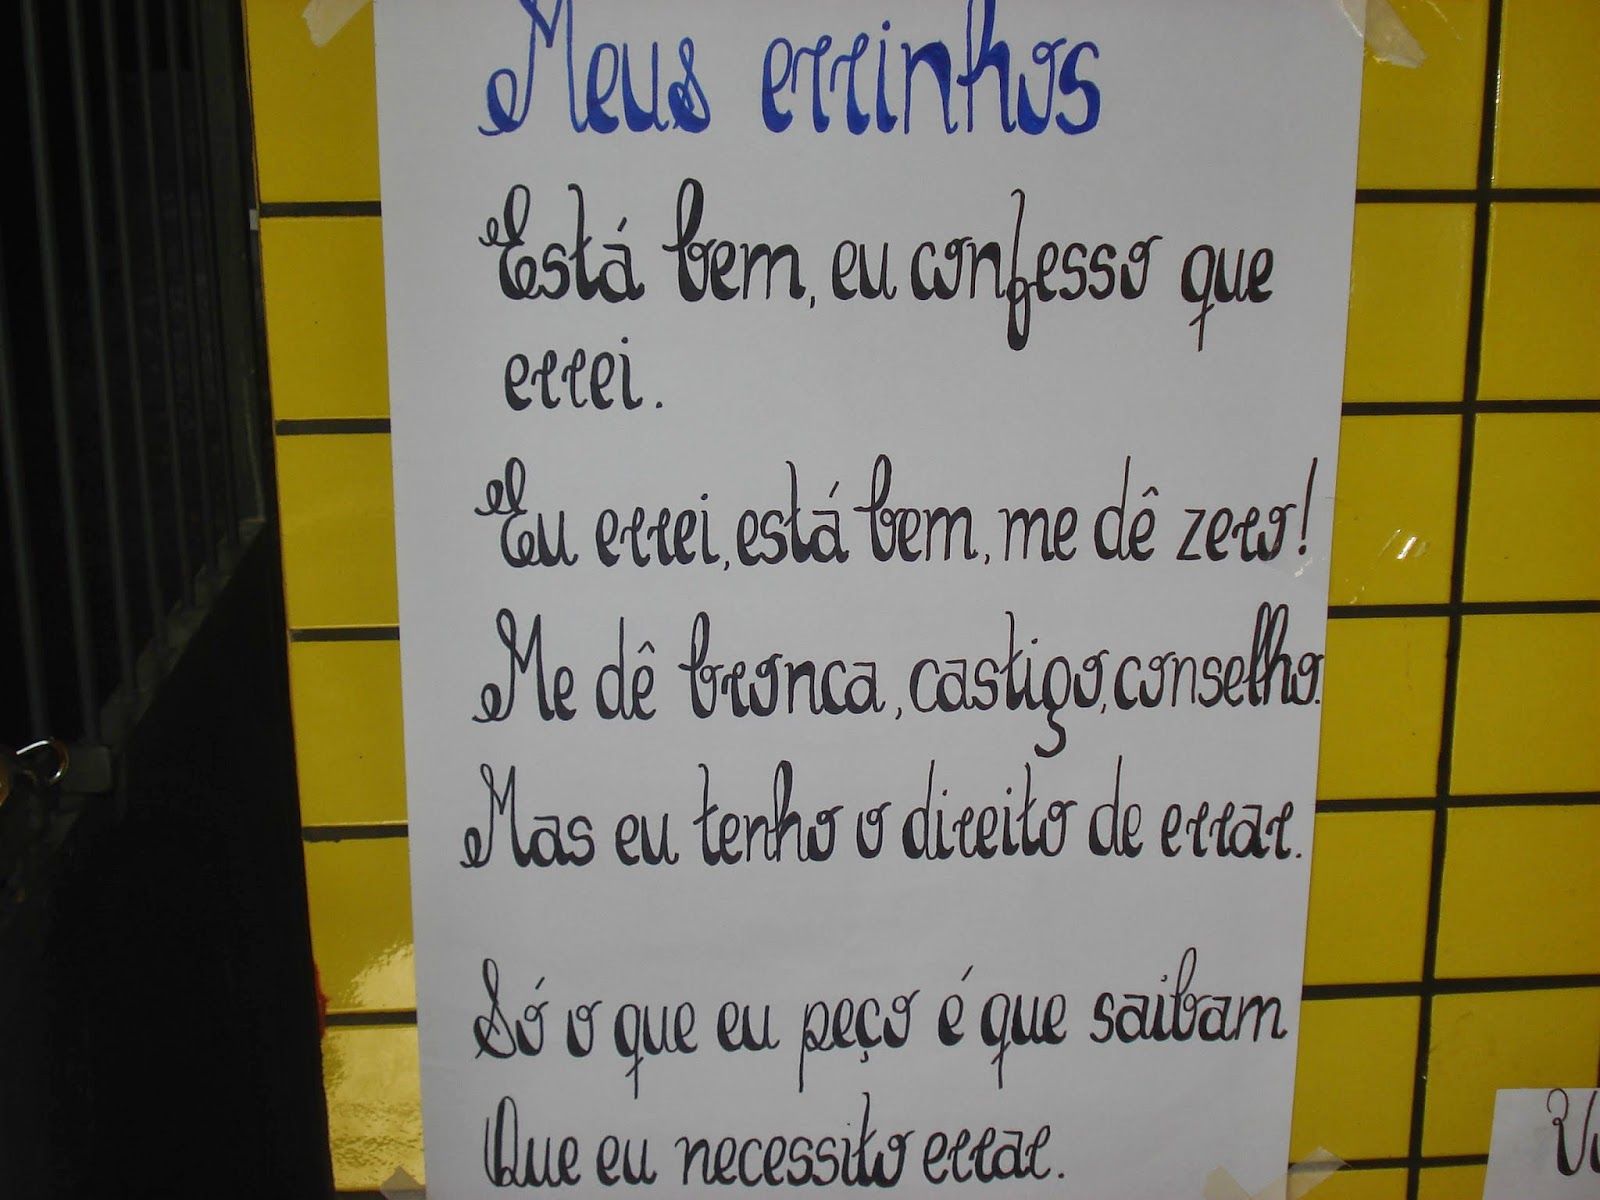 Meus errinhos
Está bem, eu confesso que
errei.
Eu errei, está bem, me dê zero!
Me dê bronca, castigo, conselho.
Mas eu tenho o direito de errar.
Só o que eu peço é que saibam
Que eu necessito errar.